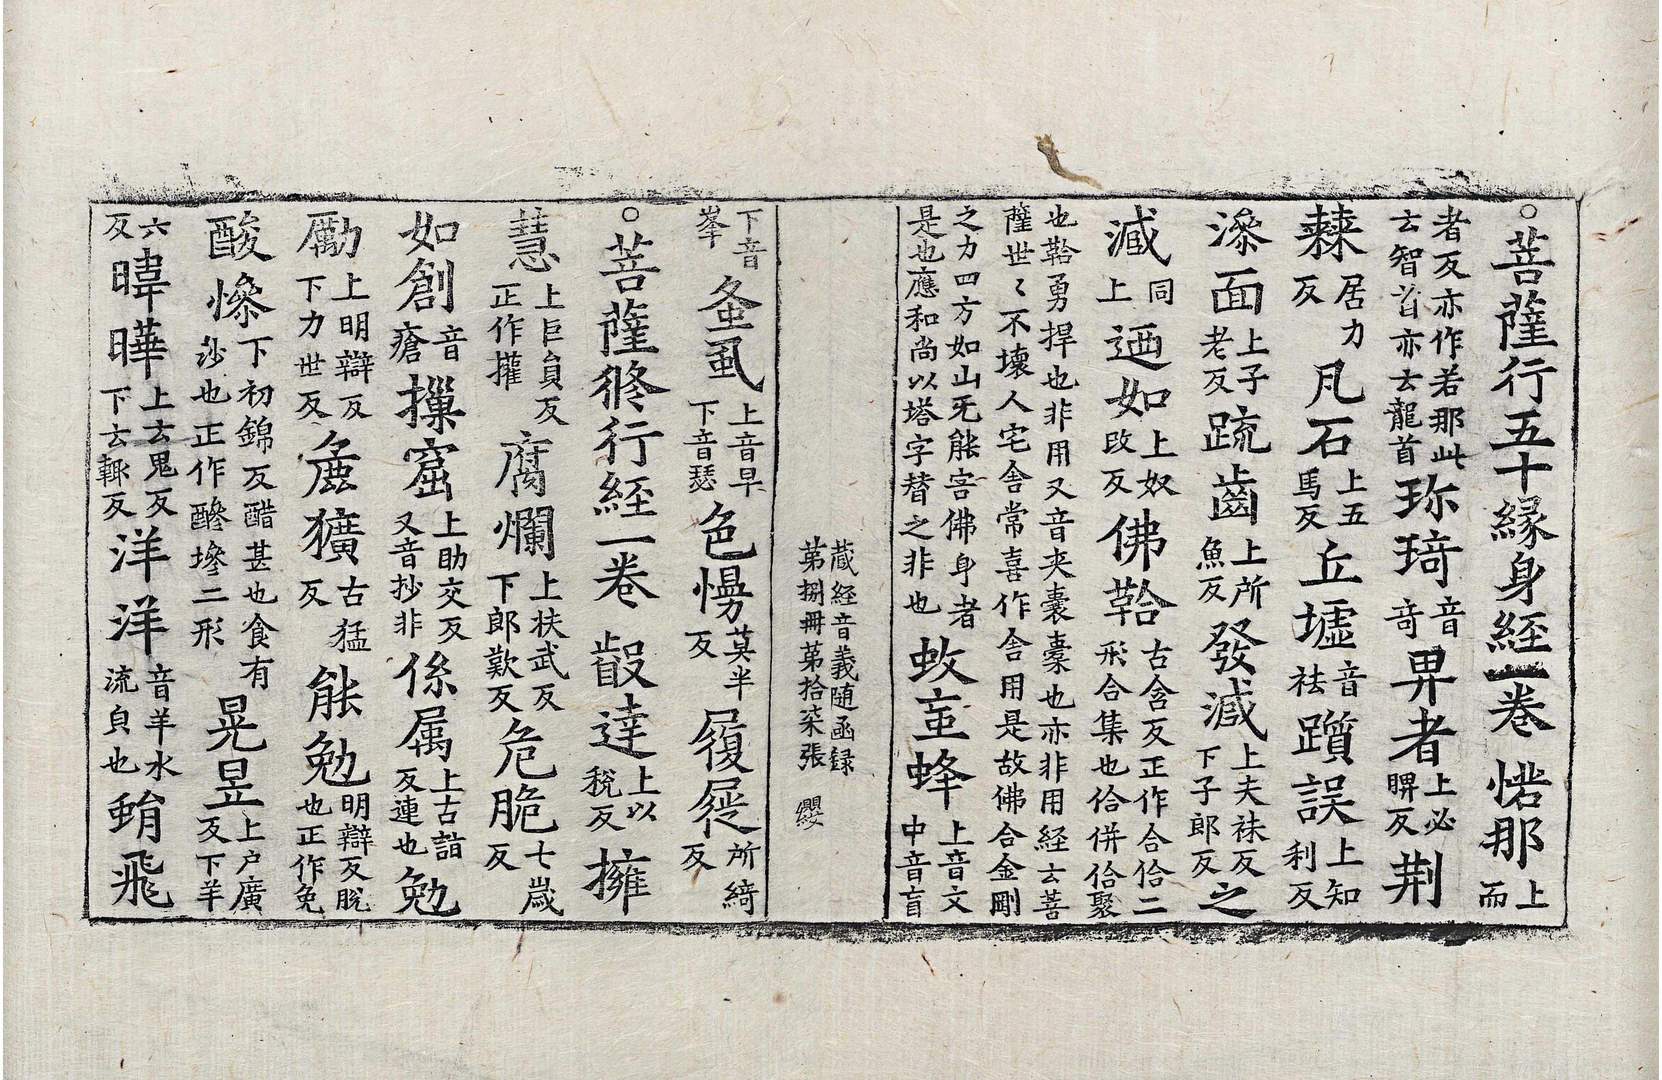 ○菩薩行五十縁身經一卷 惽那上而
者反亦作若那此云智首亦云龍首珎琦音奇畀者上必睤反荆
棘居力反凡石上五馬反丘墟音袪躓誤上知利反
㴙面上子老反䟽齒上所魚反發減上夫袜反下子郎反之
減同上迺如上奴改反佛鞈古含反正作合佮二形合集也佮併佮聚
也鞈勇捍也非用又音夾囊橐也亦非用経云菩薩世〻不壞人宅舎常喜作舎用是故佛合金剛
之力四方如山旡䏻害佛身者是也應和尚以塔字替之非也蚊䖟蜂上音文中音盲
蔵経音義随函録
第捌冊第拾柒張 纓
下音峯蚤虱上音早下音瑟色慢莫半反履屣所綺反
○菩薩修行経一卷 㲉逹上以稅反擁
慧上巨貟反正作㩲腐爛上扶武反下郎歎反危脆七歲反
如創音瘡摷窟上助交反又音抄非係属上古詣反連也勉
勵上明辯反下力世反麁獷古猛反䏻勉明辯反脫也正作免
酸慘下初錦反醋甚也食有沙也正作醦墋二形晃昱上户廣反下羊
六反暐曄上云鬼反下云輙反洋洋音羊水流皃也蜎飛